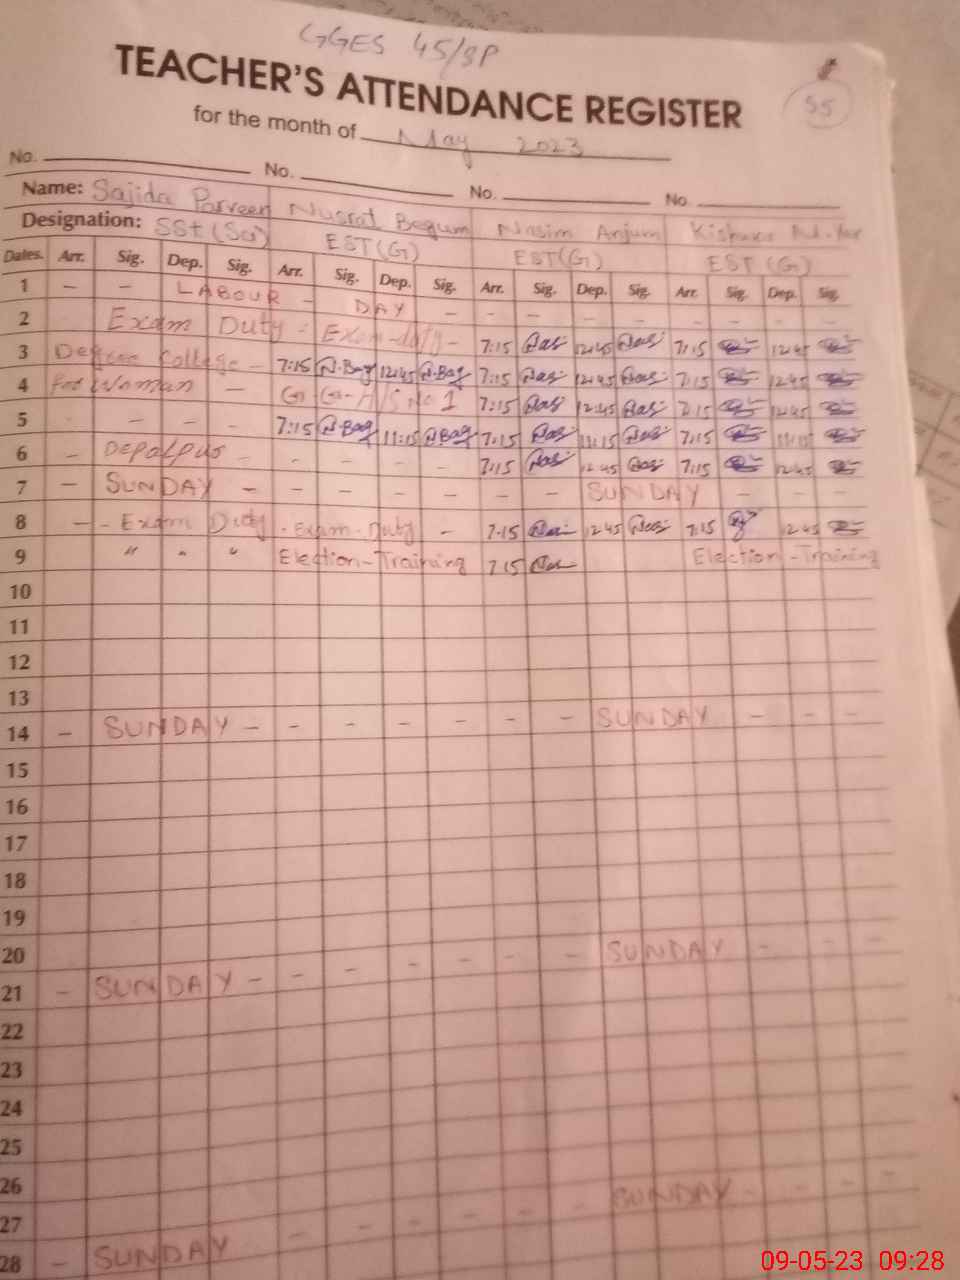 GGES 45/SP
55
TEACHER'S ATTENDANCE REGISTER
for the month of May 2023
No. No. No. No.
Name: Sajida Parveen Nusrat Begum Nasim Anjum
Designation: SSt (Sci) EST(G) EST(G) EST (G)
Dates. Arr. Sig. Dep. Sig. Arr. Sig. Dep. Sig. Arr. Sig. Dep. Sig. Arr. Sig. Dep. Sig.
1 - - LABOUR - DAY - - - - - - - - -
2 Exam Duty - Exam-duty - 7:15 12:45 7:15 12:45
3 Degree College - 7:15 N.Beg 12:45 N.Beg 7:15 12:45 7:15 12:45
4 For Woman - G-G-H/S No 1 7:15 12:45 7:15 12:45
5 - - - - 7:15 N.Beg 11:15 N.Beg 7:15 11:15 7:15 11:15
6 - Depalpur - - - - - 7:15 12:45 7:15 12:45
7 - SUNDAY - - - - - - - SUNDAY - - -
8 - - Exam Duty - Exam-Duty - 7:15 12:45 7:15 12:45
9 " " " Election-Training 7:15 Election-Training
10
11
12
13
14 - SUNDAY - - - - - - - SUNDAY - - -
15
16
17
18
19
20
21 - SUNDAY - - - - - - - SUNDAY - - -
22
23
24
25
26
27
28 - SUNDAY - - - - - - SUNDAY - - -
09-05-23 09:28